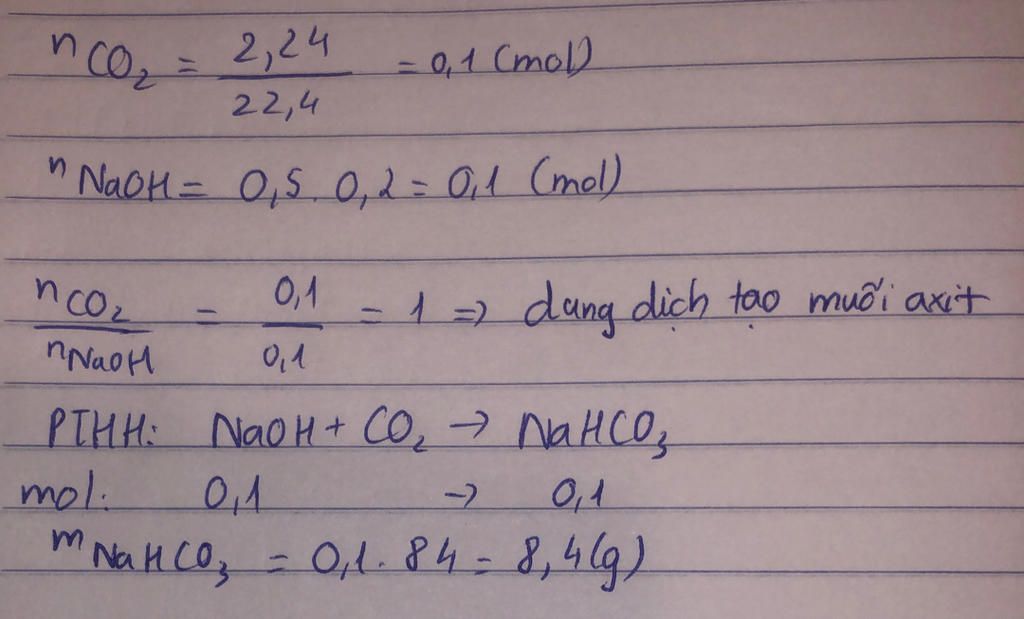 nCO₂ = 2,24 / 22,4 = 0,1 (mol)
nNaOH = 0,5 . 0,2 = 0,1 (mol)
nCO₂ / nNaOH = 0,1 / 0,1 = 1 => dung dịch tạo muối axit
PTHH: NaOH + CO₂ → NaHCO₃
mol: 0,1 → 0,1
mNaHCO₃ = 0,1 . 84 = 8,4(g)